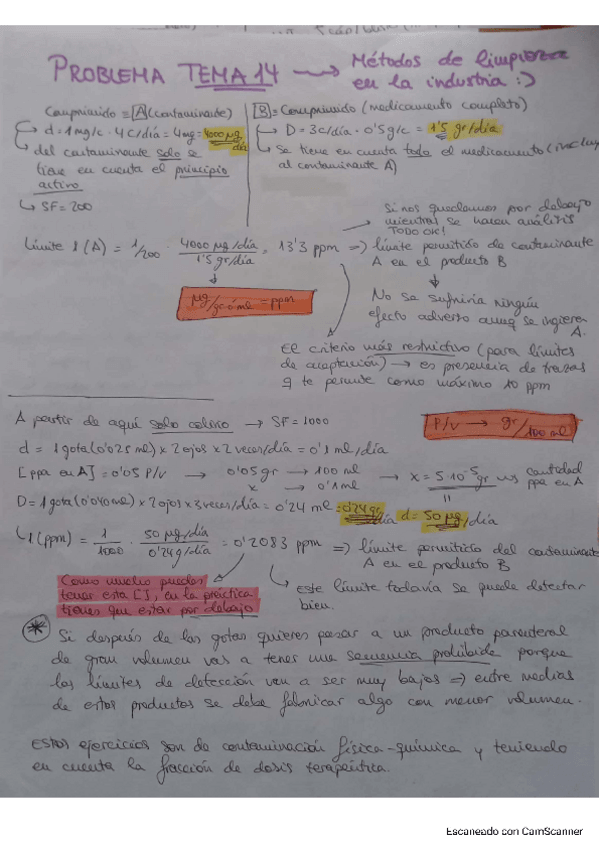 PROBLEMA TEMA 14 → Métodos de limpieza
en la industria :)
Comprimido = [A] (contaminante)
→ d = 1 mg/c · 4 c/día = 4 mg = 4000 µg/día
→ del contaminante solo se
tiene en cuenta el principio
activo
→ SF = 200
[B] = Comprimido (medicamento completo)
→ D = 3 c/día · 0'5 g/c = 1'5 gr/día
→ se tiene en cuenta todo el medicamento
al contaminante A)
Si nos quedamos por debajo
mientras se hacen análisis
TODO OK!
Límite 1 (A) = 1/200 · 4000 µg/día / 1'5 gr/día = 13'3 ppm ⇒ límite permitido de contaminante
A en el producto B
µg/gr ó ml = ppm
No se sufriría ningún
efecto adverso aunq se ingiera
A.
El criterio más restrictivo (para límites
de aceptación) → es presencia de trazas
q te permite como máximo 10 ppm
A partir de aquí solo colirio → SF = 1000
P/V → gr/100 ml
d = 1 gota (0'025 ml) x 2 ojos x 2 veces/día = 0'1 ml/día
[ppa en A] = 0'05 P/V → 0'05 gr → 100 ml
x → 0'1 ml
→ x = 5·10⁻⁵ gr → cantidad
ppa en A
D = 1 gota (0'040 ml) x 2 ojos x 3 veces/día = 0'24 ml = 0'24 gr/día d = 50 µg/día
L1 (ppm) = 1/1000 · 50 µg/día / 0'24 g/día = 0'2083 ppm ⇒ límite permitido del contaminante
A en el producto B
Como mucho puedes
tener esta [ ], en la práctica
tienes que estar por debajo
→ este límite todavía se puede detectar
bien.
* Si después de las gotas quieres pasar a un producto parenteral
de gran volumen vas a tener una secuencia prohibida porque
los límites de detección van a ser muy bajos ⇒ entre medias
de estos productos se debe fabricar algo con menor volumen.
Estos ejercicios son de contaminación física-química y teniendo
en cuenta la fracción de dosis terapéutica.
Escaneado con CamScanner